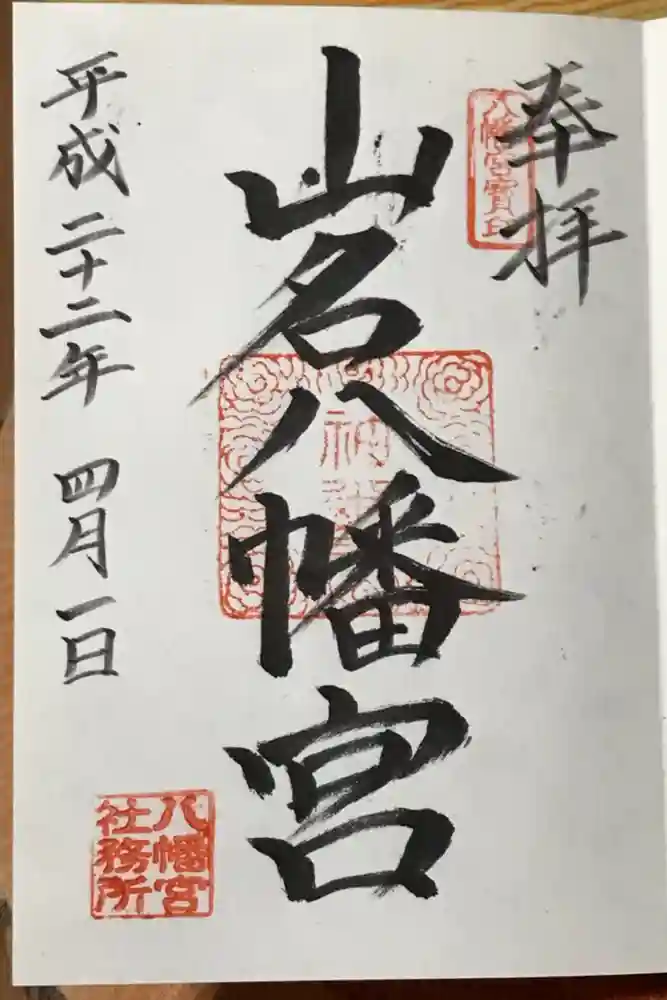 奉拝
八幡宮寶印
山名八幡宮
神
平成二十二年 四月一日
八幡宮
社務所